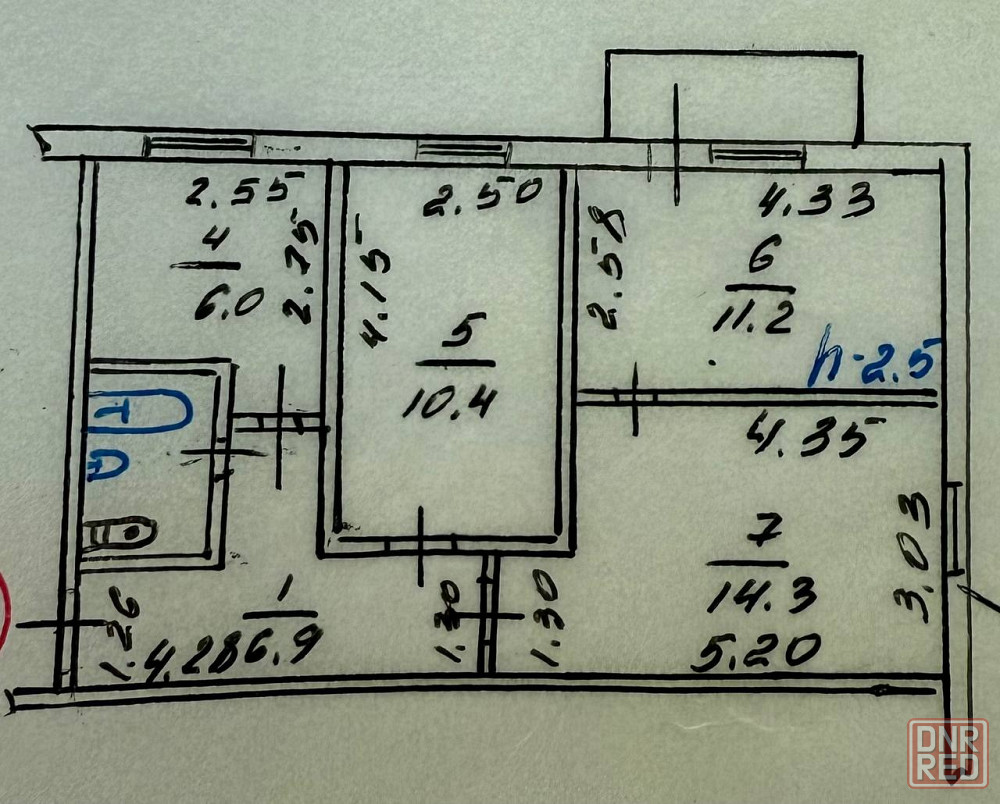 2.55
2.50
4.33
4
6.0
2.75
4.15
5
10.4
2.58
6
11.2
h-2.5
4.35
7
14.3
3.03
5.20
1
6.9
1.26
4.28
1.30
1.30
DNR
RED